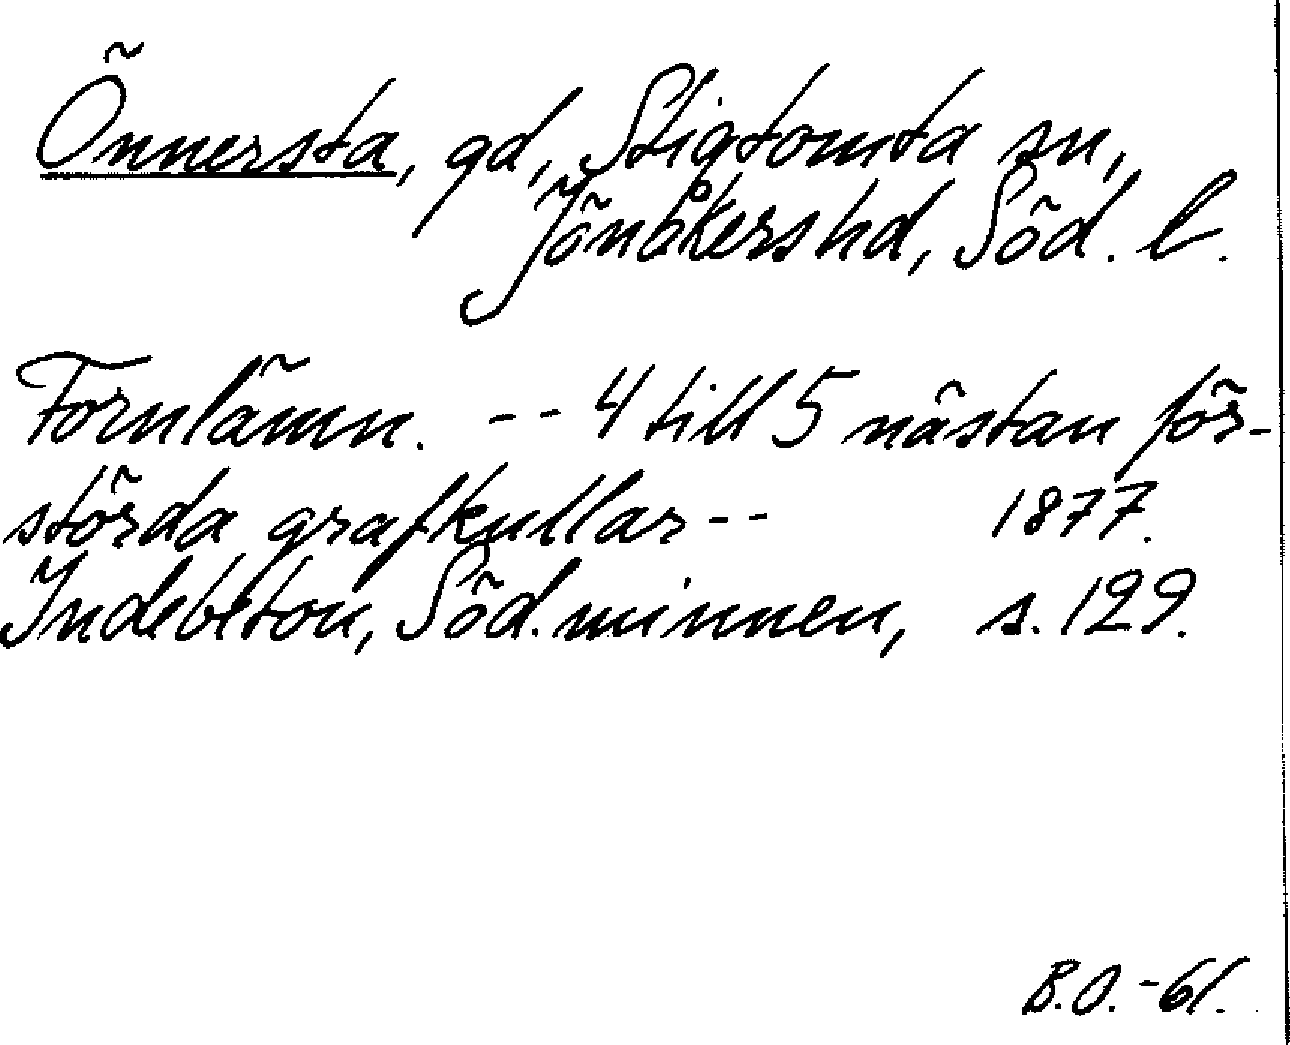 Önnersta, gd, Stigtomta sn,
Jönåkers hd, Söd. l.
Fornlämn. -- 4 till 5 nästan för-
störda grafkullar -- 1877.
Indebetou, Söd. minnen, s. 129.
B.O. -61.